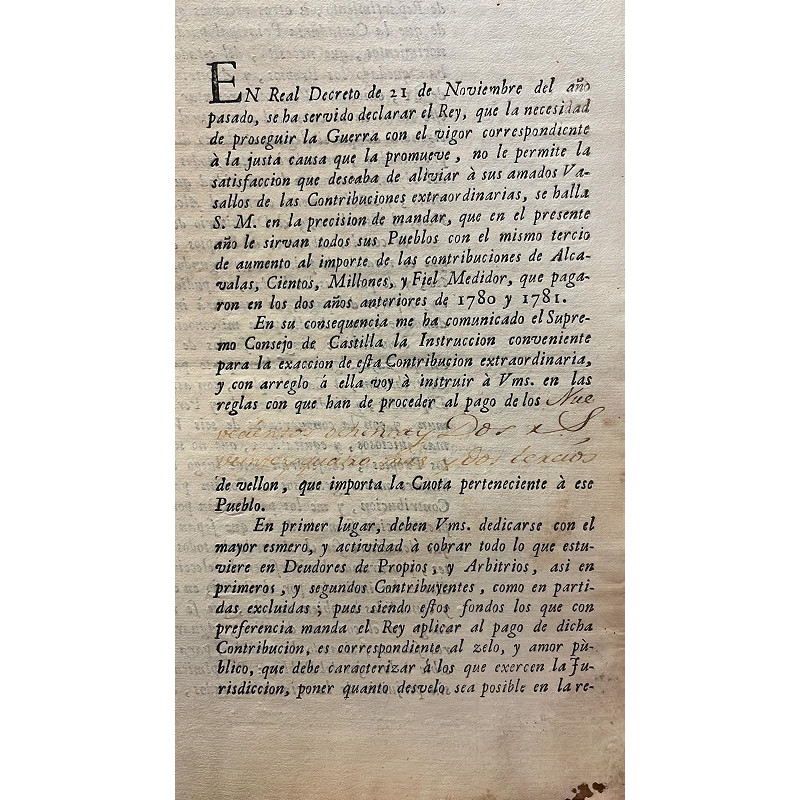 EN Real Decreto de 21 de Noviembre del año
pasado, se ha servido declarar el Rey, que la necesidad
de proseguir la Guerra con el vigor correspondiente
à la justa causa que la promueve, no le permite la
satisfaccion que deseaba de aliviar à sus amados Va-
sallos de las Contribuciones extraordinarias, se halla
S. M. en la precision de mandar, que en el presente
año le sirvan todos sus Pueblos con el mismo tercio
de aumento al importe de las contribuciones de Alca-
valas, Cientos, Millones, y Fiel Medidor, que paga-
ron en los dos años anteriores de 1780 y 1781.
En su consequencia me ha comunicado el Supre-
mo Consejo de Castilla la Instruccion conveniente
para la exaccion de esta Contribucion extraordinaria,
y con arreglo à ella voy à instruir à Vms. en las
reglas con que han de proceder al pago de los Nue
vecientos ochenta y Dos r.s
veinte y quatro mrs y dos tercios
de vellon, que importa la Cuota perteneciente à ese
Pueblo.
En primer lugar, deben Vms. dedicarse con el
mayor esmero, y actividad à cobrar todo lo que estu-
viere en Deudores de Propios, y Arbitrios, asi en
primeros, y segundos Contribuyentes, como en parti-
das excluidas; pues siendo estos fondos los que con
preferencia manda el Rey aplicar al pago de dicha
Contribución, es correspondiente al zelo, y amor pù-
blico, que debe caracterizar à los que exercen la Ju-
risdiccion, poner quanto desvelo sea posible en la re-